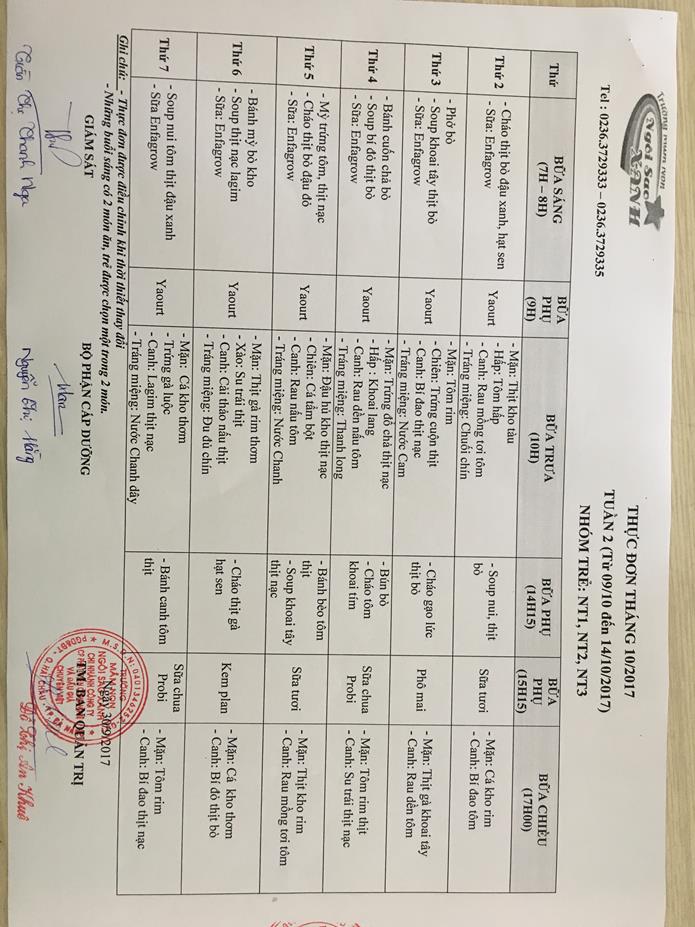 Trường mầm non
Ngôi Sao
XANH
Tel : 0236.3729333 – 0236.3729335
THỰC ĐƠN THÁNG 10/2017
TUẦN 2 (Từ 09/10 đến 14/10/2017)
NHÓM TRẺ: NT1, NT2, NT3
Thứ
BỮA SÁNG
(7H – 8H)
BỮA
PHỤ
(9H)
BỮA TRƯA
(10H)
BỮA PHỤ
(14H15)
BỮA
PHỤ
(15H15)
BỮA CHIỀU
(17H00)
Thứ 2
- Cháo thịt bò đậu xanh, hạt sen
- Sữa: Enfagrow
Yaourt
- Mặn: Thịt kho tàu
- Hấp: Tôm hấp
- Canh: Rau mồng tơi tôm
- Tráng miệng: Chuối chín
- Soup nui, thịt
bò
Sữa tươi
- Mặn: Cá kho rim
- Canh: Bí đao tôm
Thứ 3
- Phở bò
- Soup khoai tây thịt bò
- Sữa: Enfagrow
Yaourt
- Mặn: Tôm rim
- Chiên: Trứng cuộn thịt
- Canh: Bí đao thịt nạc
- Tráng miệng: Nước Cam
- Cháo gạo lức
thịt bò
Phô mai
- Mặn: Thịt gà khoai tây
- Canh: Rau dền tôm
Thứ 4
- Bánh cuốn chả bò
- Soup bí đỏ thịt bò
- Sữa: Enfagrow
Yaourt
- Mặn: Trứng đổ chả thịt nạc
- Hấp : Khoai lang
- Canh: Rau dền nấu tôm
- Tráng miệng: Thanh long
- Bún bò
- Cháo tôm
khoai tím
Sữa chua
Probi
- Mặn: Tôm rim thịt
- Canh: Su trái thịt nạc
Thứ 5
- Mỳ trứng tôm, thịt nạc
- Cháo thịt bò đậu đỏ
- Sữa: Enfagrow
Yaourt
- Mặn: Đậu hủ kho thịt nạc
- Chiên: Cá tẩm bột
- Canh: Rau nấu tôm
- Tráng miệng: Nước Chanh
- Bánh bèo tôm
thịt
- Soup khoai tây
thịt nạc
Sữa tươi
- Mặn: Thịt kho rim
- Canh: Rau mồng tơi tôm
Thứ 6
- Bánh mỳ bò kho
- Soup thịt nạc lagim
- Sữa: Enfagrow
Yaourt
- Mặn: Thịt gà rim thơm
- Xào: Su trái thịt
- Canh: Cải thảo nấu thịt
- Tráng miệng: Đu đủ chín
- Cháo thịt gà
hạt sen
Kem plan
- Mặn: Cá kho thơm
- Canh: Bí đỏ thịt bò
Thứ 7
- Soup nui tôm thịt đậu xanh
- Sữa Enfagrow
Yaourt
- Mặn: Cá kho thơm
- Trứng gà luộc
- Canh: Lagim thịt nạc
- Tráng miệng: Nước Chanh dây
- Bánh canh tôm
thịt
Sữa chua
Probi
- Mặn: Tôm rim
- Canh: Bí đao thịt nạc
Ghi chú: - Thực đơn được điều chỉnh khi thời thiết thay đổi
- Những buổi sáng có 2 món ăn, trẻ được chọn một trong 2 món.
Ngày 30/9/2017
GIÁM SÁT
BỘ PHẬN CẤP DƯỠNG
TM.BAN QUẢN TRỊ
TRƯỜNG
MẦM NON
NGÔI SAO XANH
CHI NHÁNH CÔNG TY
Trần Thị Thanh Nga
Nguyễn Thị Hằng
Đỗ Thị An Khuê